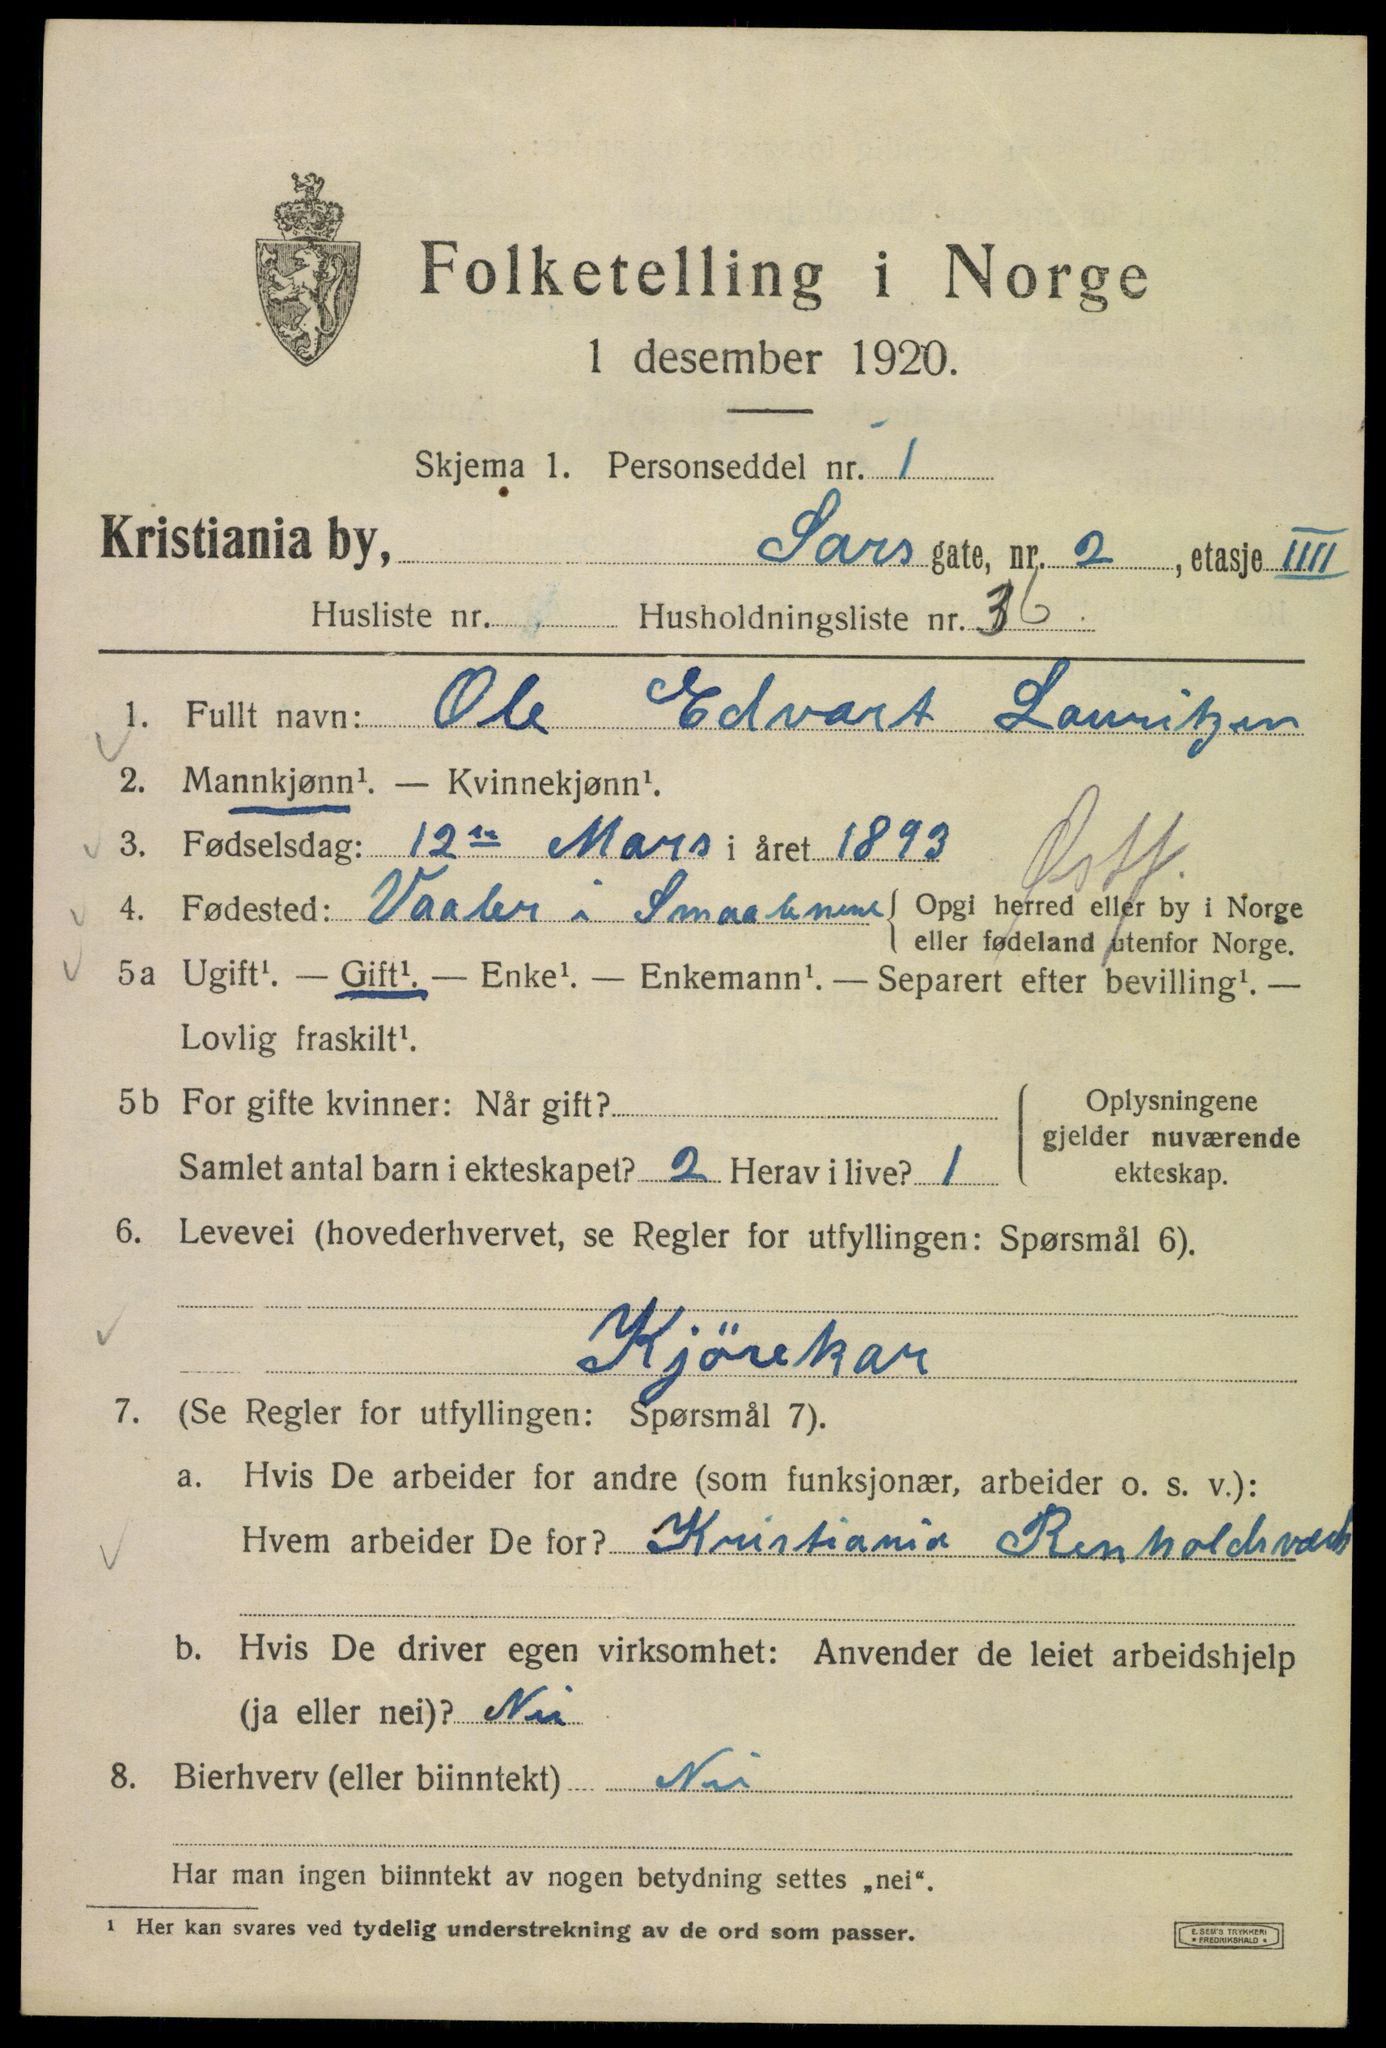 Folketelling i Norge
1 desember 1920.
Skjema 1. Personseddel nr. 1
Kristiania by, Sars gate, nr. 2, etasje IIII
Husliste nr. Husholdningsliste nr. 36
1. Fullt navn: Ole Edvart Lauritzen
2. Mannkjønn¹. — Kvinnekjønn¹.
3. Fødselsdag: 12te Mars i året 1893
Østf.
4. Fødested: Vaaler i Smaalenene { Opgi herred eller by i Norge
eller fødeland utenfor Norge.
5a Ugift¹. — Gift¹. — Enke¹. — Enkemann¹. — Separert efter bevilling¹. —
Lovlig fraskilt¹.
5b For gifte kvinner: Når gift?
Samlet antal barn i ekteskapet? 2 Herav i live? 1
Oplysningene
gjelder nuværende
ekteskap.
6. Levevei (hovederhvervet, se Regler for utfyllingen: Spørsmål 6).
Kjörekar
7. (Se Regler for utfyllingen: Spørsmål 7).
a. Hvis De arbeider for andre (som funksjonær, arbeider o. s. v.):
Hvem arbeider De for? Kristiania Renholdsverk
b. Hvis De driver egen virksomhet: Anvender de leiet arbeidshjelp
(ja eller nei)? Nei
8. Bierhverv (eller biinntekt) Nei
Har man ingen biinntekt av nogen betydning settes „nei“.
¹ Her kan svares ved tydelig understrekning av de ord som passer.
E. SEM'S TRYKKERI
* FREDRIKSHALD *